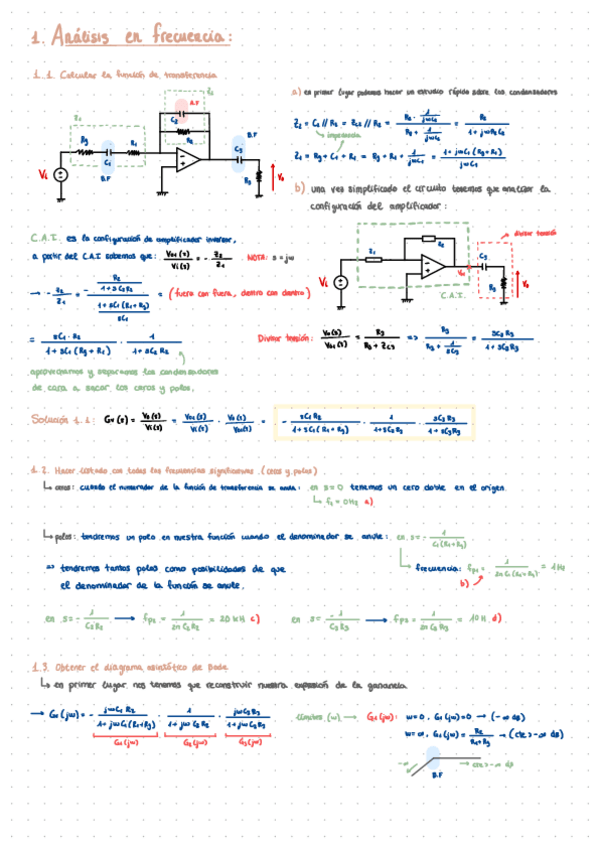 1. Análisis en frecuencia:
1.1. Calcular la función de transferencia
a) en primer lugar podemos hacer un estudio rápido sobre los condensadores
Z2
A.F
C2
R2
Z1
Rg
C1
R1
B.F
B.F
C3
R3
Vi
Vo
Z2 = C2 // R2 = Zc2 // R2 = (R2 · 1/jωC2) / (R2 + 1/jωC2) = R2 / (1 + jωR2C2)
impedancia
Z1 = Rg + C1 + R1 = Rg + R1 + 1/jωC1 = (1 + jωC1 (Rg + R1)) / jωC1
b) una vez simplificado el circuito tenemos que analizar la
configuración del amplificador:
C.A.I. es la configuración de amplificador inversor,
a partir del C.A.I sabemos que: Vo1(s) / Vi(s) = - Z2 / Z1 NOTA: s = jω
divisor tensión
Z1
C3
R3
Vi
Vo
C.A.I.
→ - Z2 / Z1 = - (R2 / (1 + sC2R2)) / ((1 + sC1 (R1 + Rg)) / sC1) = (fuera con fuera, dentro con dentro)
= sC1 · R2 / (1 + sC1 (Rg + R1)) · 1 / (1 + sC2 R2)
Divisor tensión: Vo(s) / Vo1(s) = R3 / (R3 + Zc3) => R3 / (R3 + 1/sC3) = sC3 R3 / (1 + sC3 R3)
aprovechamos y separamos los condensadores
de cara a sacar los ceros y polos.
Solución 1.1: Gv(s) = Vo(s) / Vi(s) = Vo1(s) / Vi(s) · Vo(s) / Vo1(s) = - sC1 R2 / (1 + sC1 (R1 + Rg)) · 1 / (1 + sC2 R2) · sC3 R3 / (1 + sC3 R3)
1.2. Hacer listado con todas las frecuencias significativas. (ceros y polos)
ceros: cuando el numerador de la función de transferencia se anula: en s=0 tenemos un cero doble en el origen.
fz = 0Hz a)
polos: tendremos un polo en nuestra función cuando el denominador se anule: en s = - 1 / C1(R1+Rg)
=> tendremos tantos polos como posibilidades de que
el denominador de la función se anule.
frecuencia: fp1 = 1 / 2π C1(R1+Rg) = 1 Hz
b)
en s = - 1 / C2 R2 → fp2 = 1 / 2π C2 R2 = 20 kH c)
en s = - 1 / C3 R3 → fp3 = 1 / 2π C3 R3 = 10H d)
1.3. Obtener el diagrama asintótico de Bode
en primer lugar nos tenemos que reconstruir nuestra expresión de la ganancia
→ Gv(jω) = - jωC1 R2 / (1 + jωC1 (R1+Rg)) · 1 / (1 + jω C2 R2) · jωC3 R3 / (1 + jωC3 R3)
G1(jω)
G2(jω)
G3(jω)
límites (ω) → G1(jω): ω=0, G1(jω)=0 → (-∞ dB)
ω=∞, G1(jω) = R2 / (R1+Rg) → (cte > -∞ dB)
-∞
cte > -∞ dB
B.F